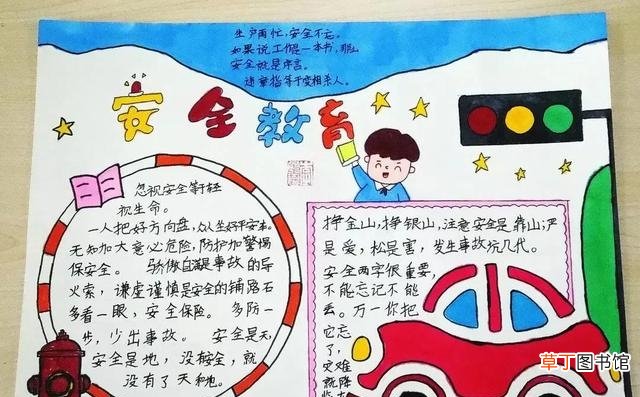 生产再忙,安全不忘。
如果说工作是一本书,那么
安全就是序言。
违章指挥等于变相杀人。
安全教育
忽视安全等于轻
视生命。
一人把好方向盘,众人坐好平安车。
无知加大意必危险,防护加警惕
保安全。 骄傲自满是事故的导
火索,谦虚谨慎是安全的铺路石
多看一眼,安全保险。 多防一
步,少出事故。 安全是天,
安全是地,没有安全,就
没有了天和地。
挣金山,挣银山,注意安全是靠山;严
是爱,松是害,发生事故坑几代。
安全两字很重要,
不能忘记不能
丢。万一你把
它忘
了,
灾难
就降
草丁图书馆